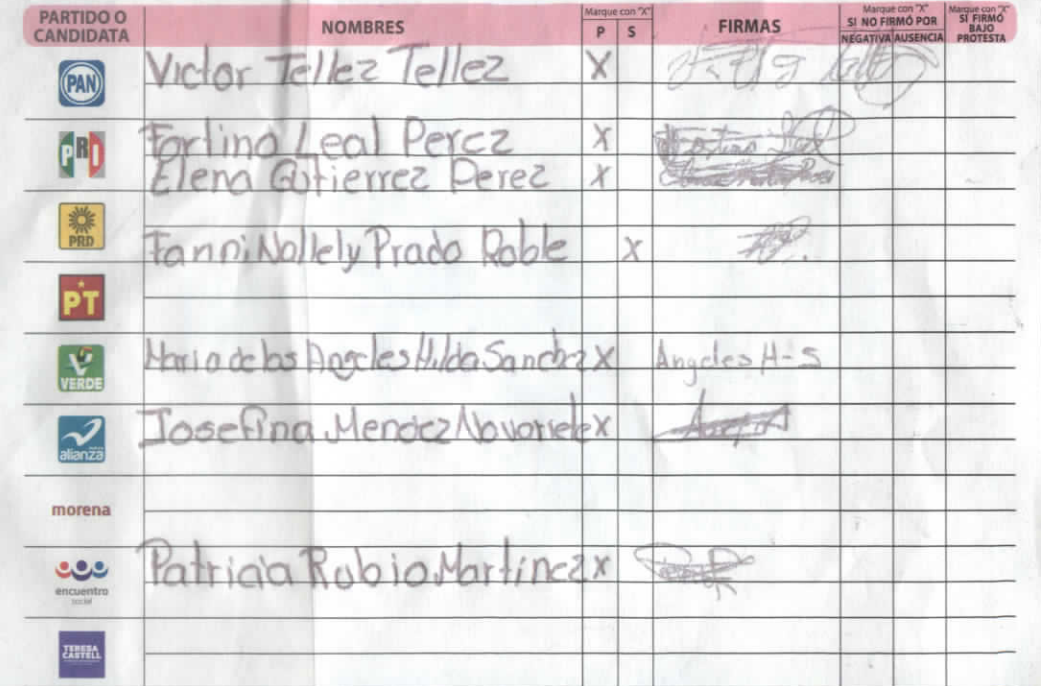 PARTIDO O CANDIDATA NOMBRES Marque con "X" P S FIRMAS Marque con "X" SI NO FIRMÓ POR NEGATIVA AUSENCIA Marque con "X" SI FIRMÓ BAJO PROTESTA
PAN Victor Tellez Tellez X
PRI Fortino Leal Perez X
Elena Gutierrez Perez X
PRD Fanni Nallely Prado Roble X
PT
VERDE Maria de los Angeles Hilda Sanchez X Angeles H-S
alianza Josefina Mendez X
morena
encuentro social Patricia Rubio Martinez X
TERESA CASTELL